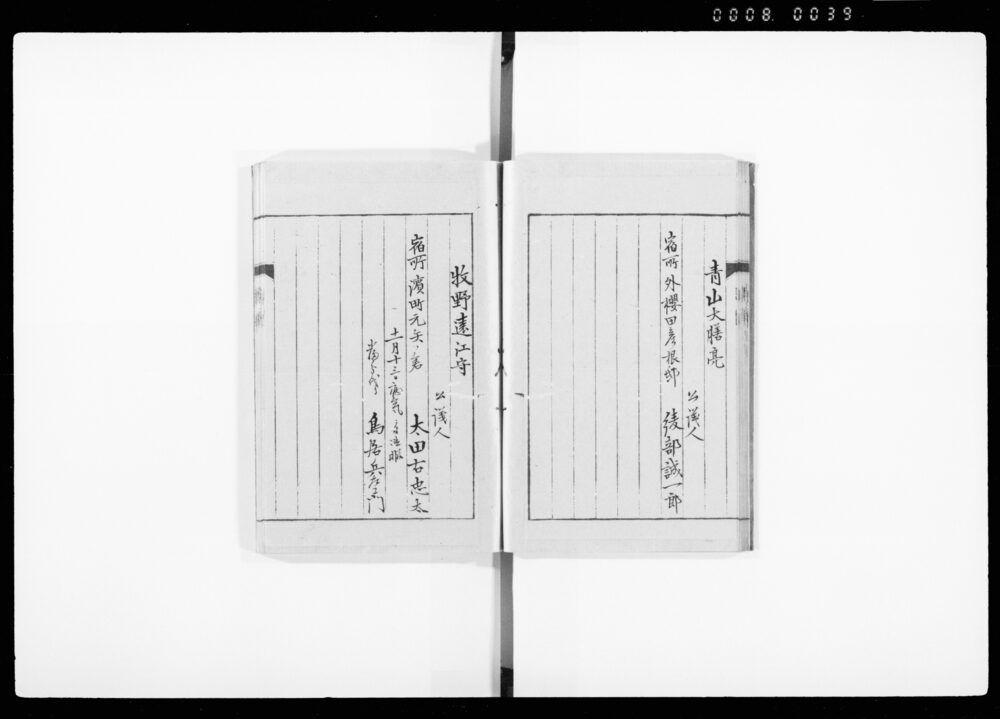 0008 0039
青山大膳亮
公議人
宿所外櫻田彦根邸 綾部誠一郎
牧野遠江守
公議人
宿所濱町元矢ノ倉 太田右忠太
十一月十三日病気ニ付
鳥居兵左衛門